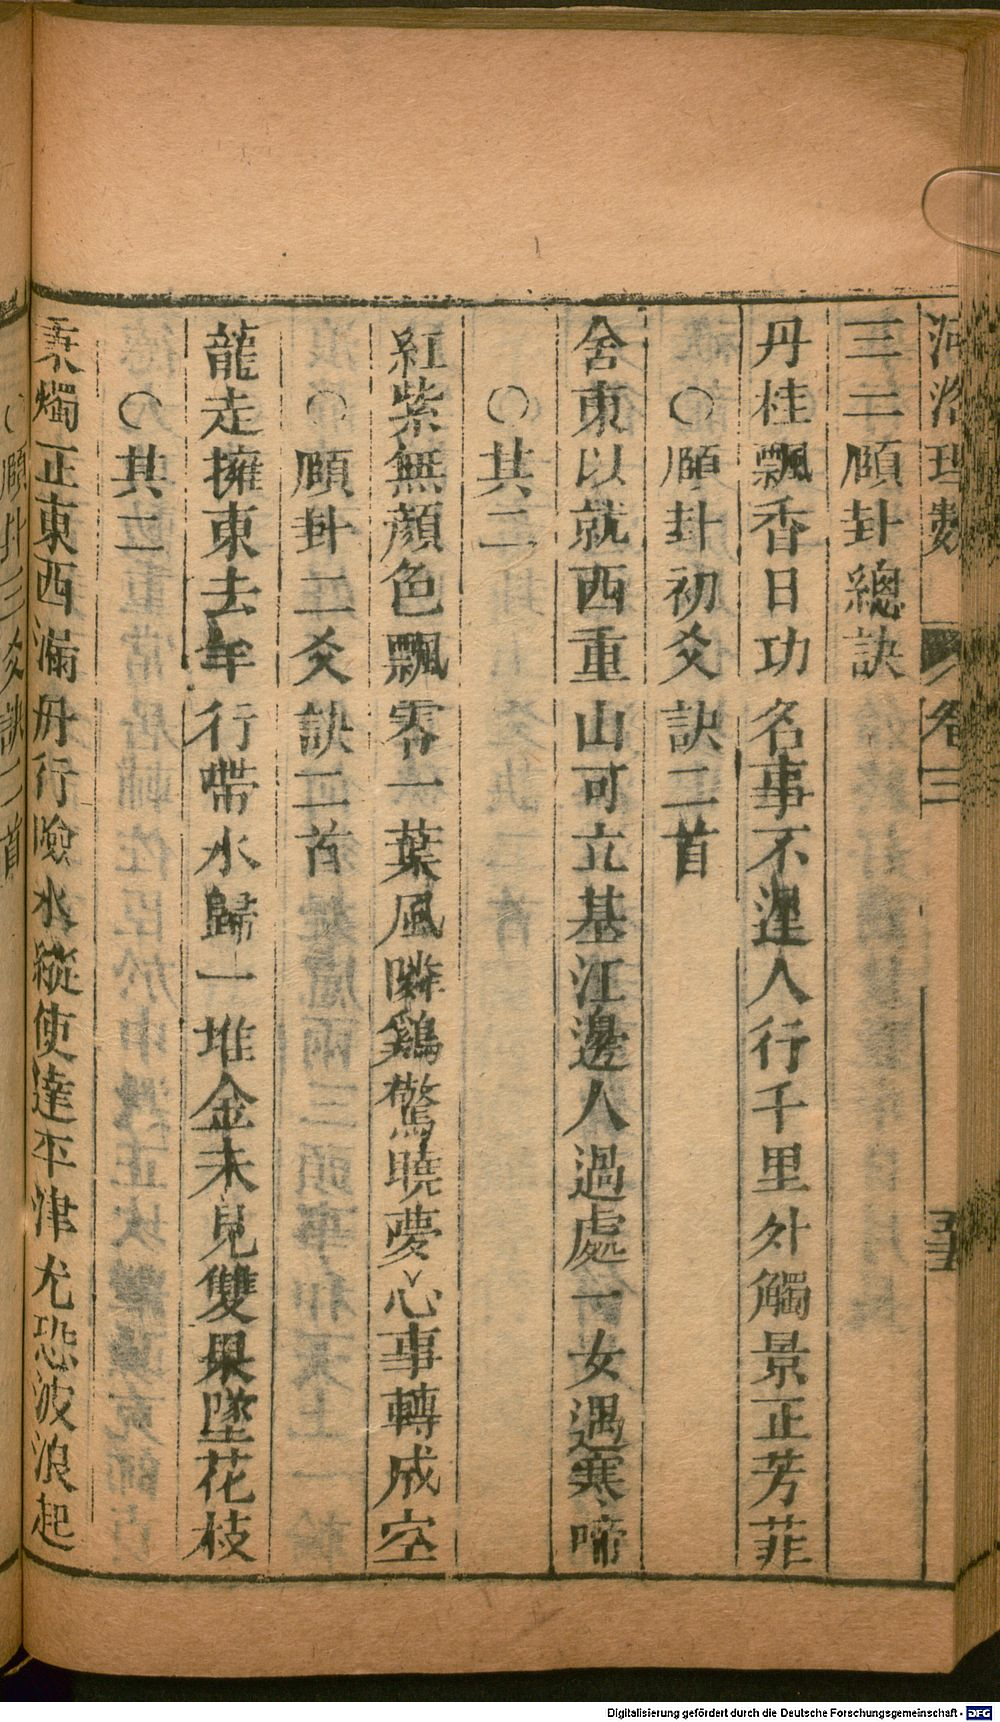 河洛理數 卷三 五
三二頤卦總訣
丹桂飄香日功名事不遲人行千里外觸景正芳菲
○頤卦初爻訣二首
舍東以就西重山可立基江邊人過處一女遇寒啼
○其二
紅紫無顔色飄零一葉風隣鷄驚曉夢心事轉成空
○頤卦二爻訣二首
龍走擁東去年行帶水歸一堆金未見雙果墜花枝
○其二
秉燭正東西滿舟行險水縱使達平津尤恐波浪起
○頤卦三爻訣二首
Digitalisierung gefördert durch die Deutsche Forschungsgemeinschaft - DFG